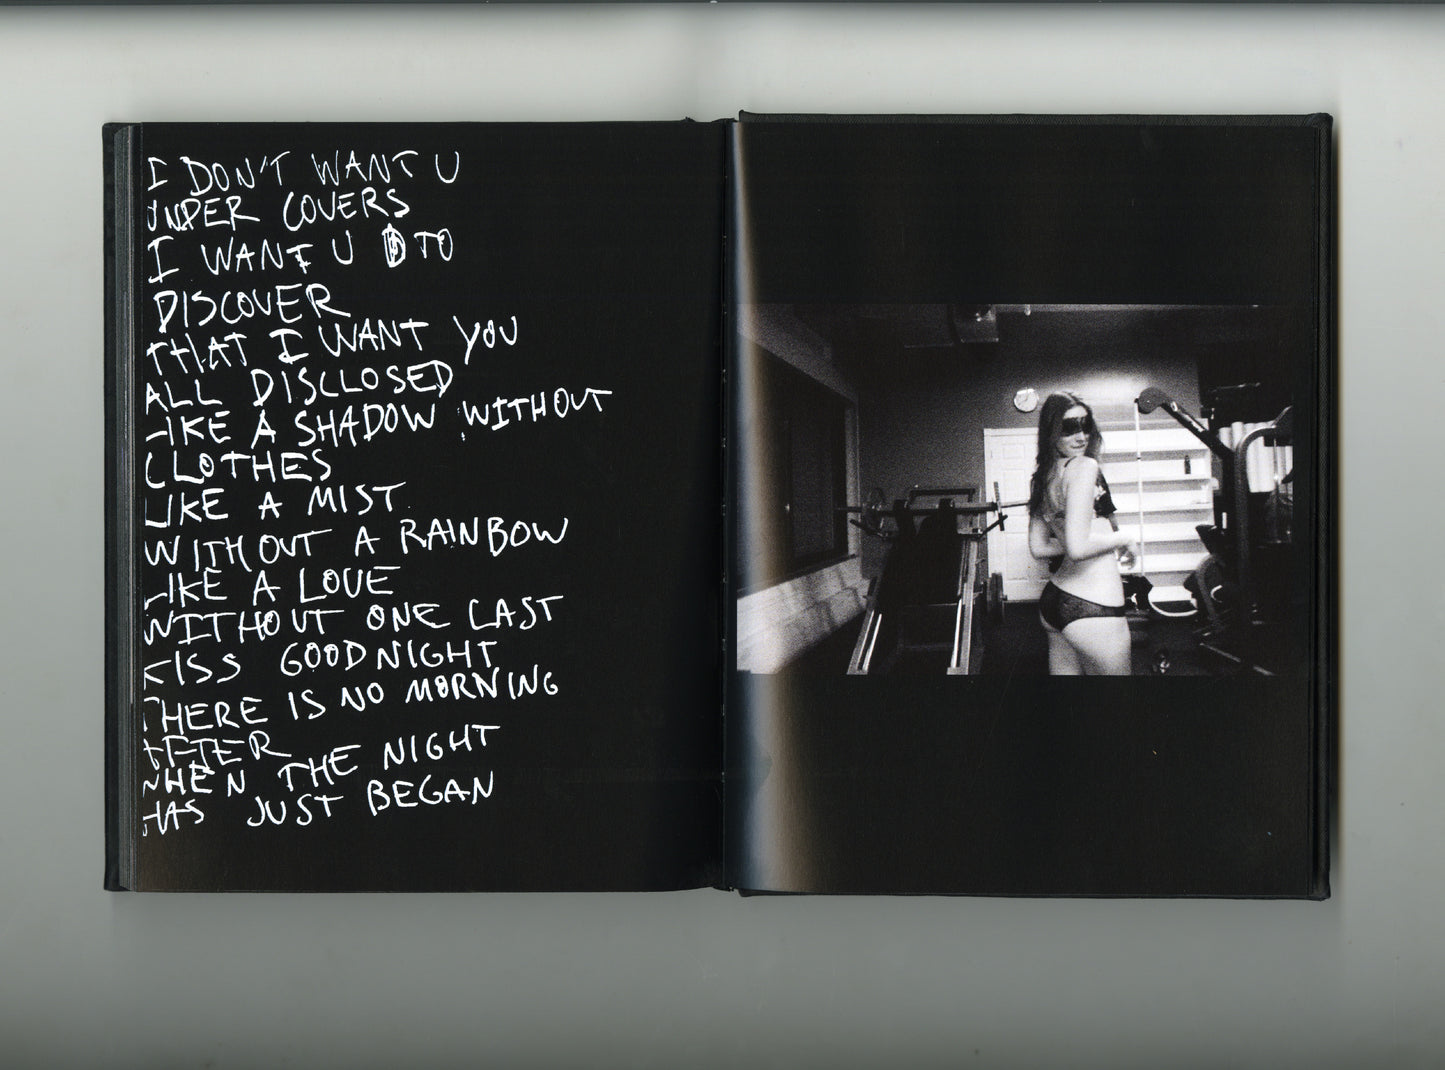 I DON'T WANT U
UNDER COVERS
I WANT U TO
DISCOVER
THAT I WANT YOU
ALL DISCLOSED
LIKE A SHADOW WITHOUT
CLOTHES
LIKE A MIST
WITHOUT A RAINBOW
LIKE A LOVE
WITHOUT ONE LAST
KISS GOODNIGHT
THERE IS NO MORNING
AFTER
WHEN THE NIGHT
HAS JUST BEGAN